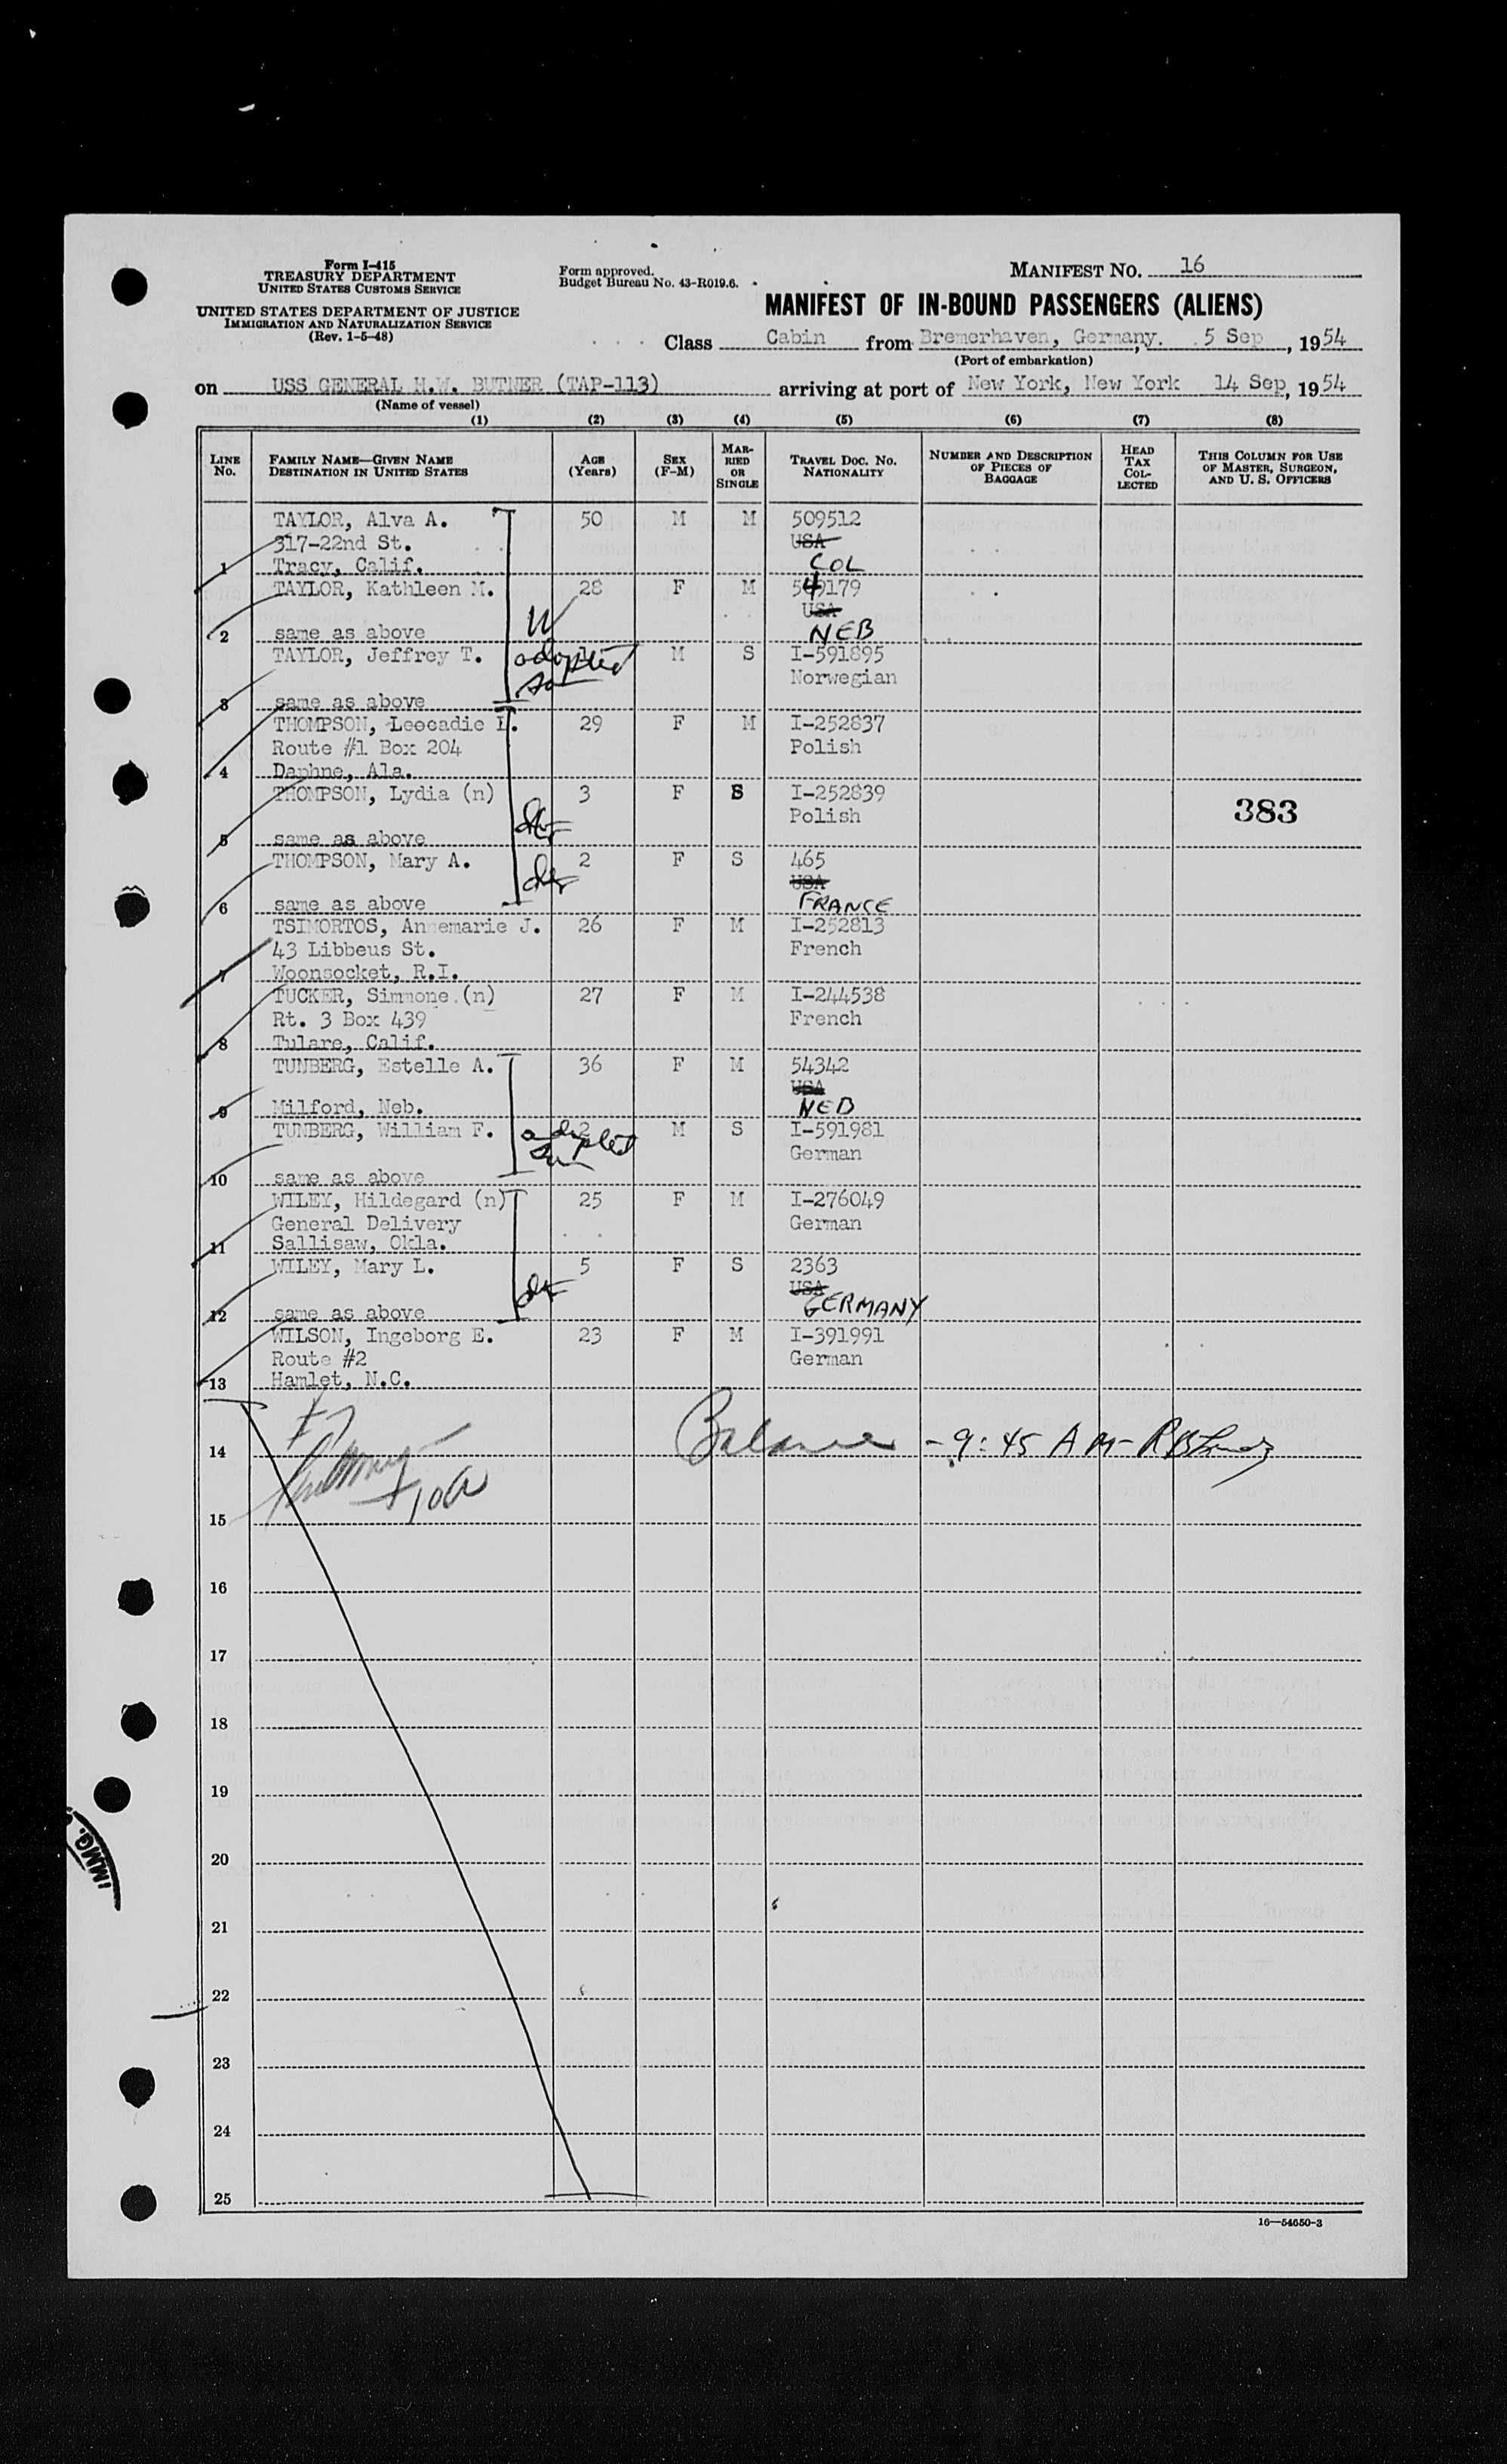 Form I-415
TREASURY DEPARTMENT
UNITED STATES CUSTOMS SERVICE
UNITED STATES DEPARTMENT OF JUSTICE
IMMIGRATION AND NATURALIZATION SERVICE
(Rev. 1-5-48)
Form approved.
Budget Bureau No. 43-R019.6.
MANIFEST NO. 16
MANIFEST OF IN-BOUND PASSENGERS (ALIENS)
Class Cabin from Bremerhaven, Germany. 5 Sep, 1954
(Port of embarkation)
on USS GENERAL M.W. BUTNER (TAP-113) arriving at port of New York, New York 14 Sep, 1954
(Name of vessel)
(1) (2) (3) (4) (5) (6) (7) (8)
LINE No. FAMILY NAME—GIVEN NAME DESTINATION IN UNITED STATES AGE (Years) SEX (F-M) MARRIED OR SINGLE TRAVEL DOC. No. NATIONALITY NUMBER AND DESCRIPTION OF PIECES OF BAGGAGE HEAD TAX COLLECTED THIS COLUMN FOR USE OF MASTER, SURGEON, AND U. S. OFFICERS
TAYLOR, Alva A. 50 M M 509512
317-22nd St. USA
1 Tracy, Calif. COL
TAYLOR, Kathleen M. 28 F M 549179
W USA
2 same as above NEB
TAYLOR, Jeffrey T. adopted M S I-591895
Norwegian
3 same as above
THOMPSON, Leocadie I. 29 F M I-252837
Route #1 Box 204 Polish
4 Daphne, Ala.
THOMPSON, Lydia (n) 3 F S I-252839
Polish 383
5 same as above
THOMPSON, Mary A. 2 F S 465
USA
6 same as above FRANCE
TSIMORTOS, Annemarie J. 26 F M I-252813
43 Libbeus St. French
7 Woonsocket, R.I.
TUCKER, Simmone (n) 27 F M I-244538
Rt. 3 Box 439 French
8 Tulare, Calif.
TUNBERG, Estelle A. 36 F M 54342
USA
9 Milford, Neb. NEB
TUNBERG, William F. adopted 2 M S I-591981
German
10 same as above
WILEY, Hildegard (n) 25 F M I-276049
General Delivery German
11 Sallisaw, Okla.
WILEY, Mary L. 5 F S 2363
USA
12 same as above GERMANY
WILSON, Ingeborg E. 23 F M I-391991
Route #2 German
13 Hamlet, N.C.
14 Balance - 9:45 AM
15
16
17
18
19
20
21
22
23
24
25
16—54650-3
IMMG.